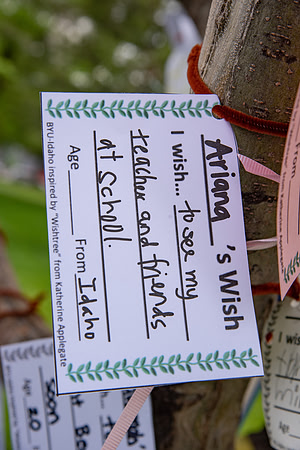 Ariana 's Wish
I wish... to see my
teacher and friends
at school.
Age From Idaho
BYU-Idaho inspired by "Wishtree" from Katherine Applegate
From
Age 20